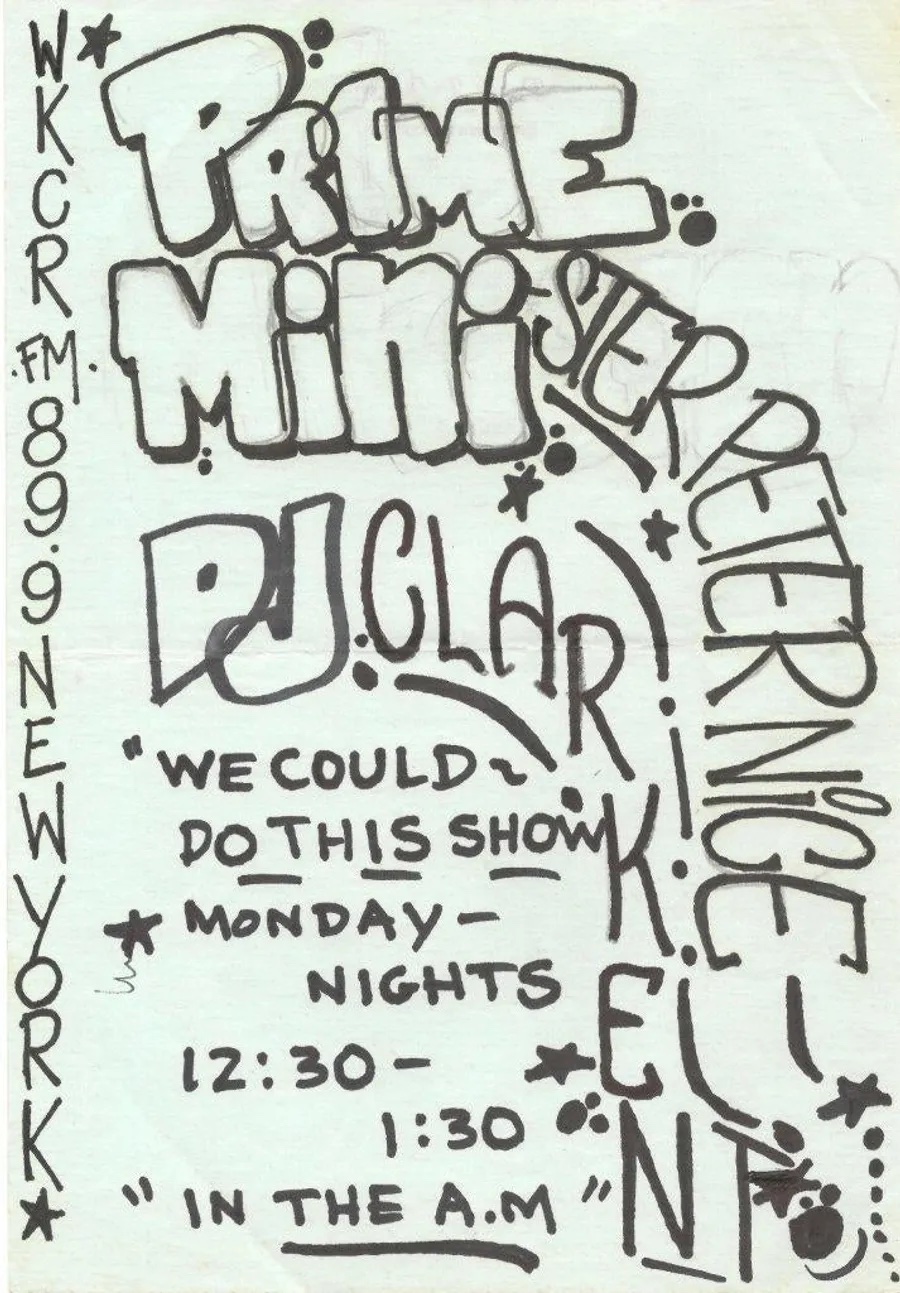 WKCR
.FM.
89.9
NEW YORK
PRIME
MiNi-STER PETERNiCE
PJ CLARK ENT
"WE COULD~
DO THIS SHOW
MONDAY-
NIGHTS
12:30-
1:30
"IN THE A.M"